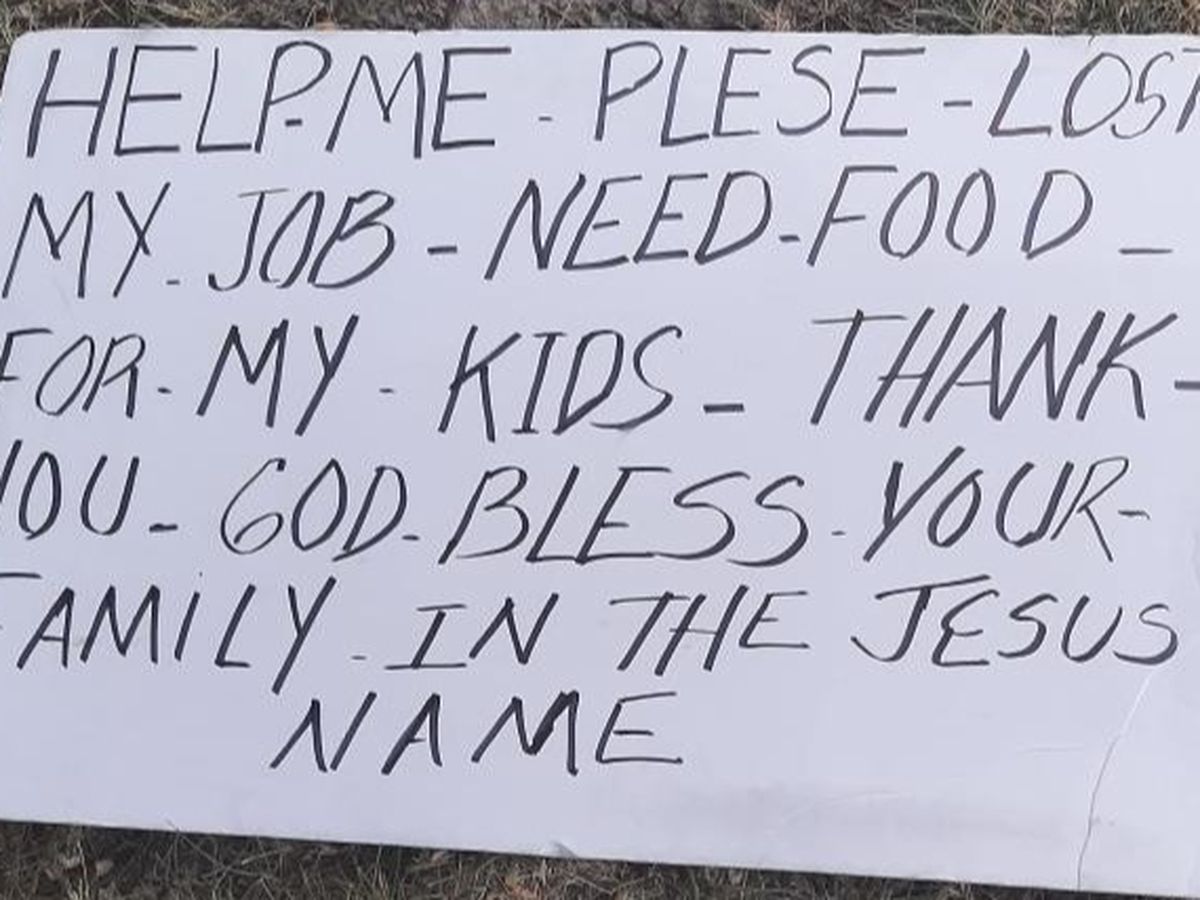 HELP-ME - PLESE - LOST
MY - JOB - NEED - FOOD -
FOR - MY - KIDS - THANK -
YOU - GOD - BLESS - YOUR -
FAMILY - IN THE JESUS
NAME